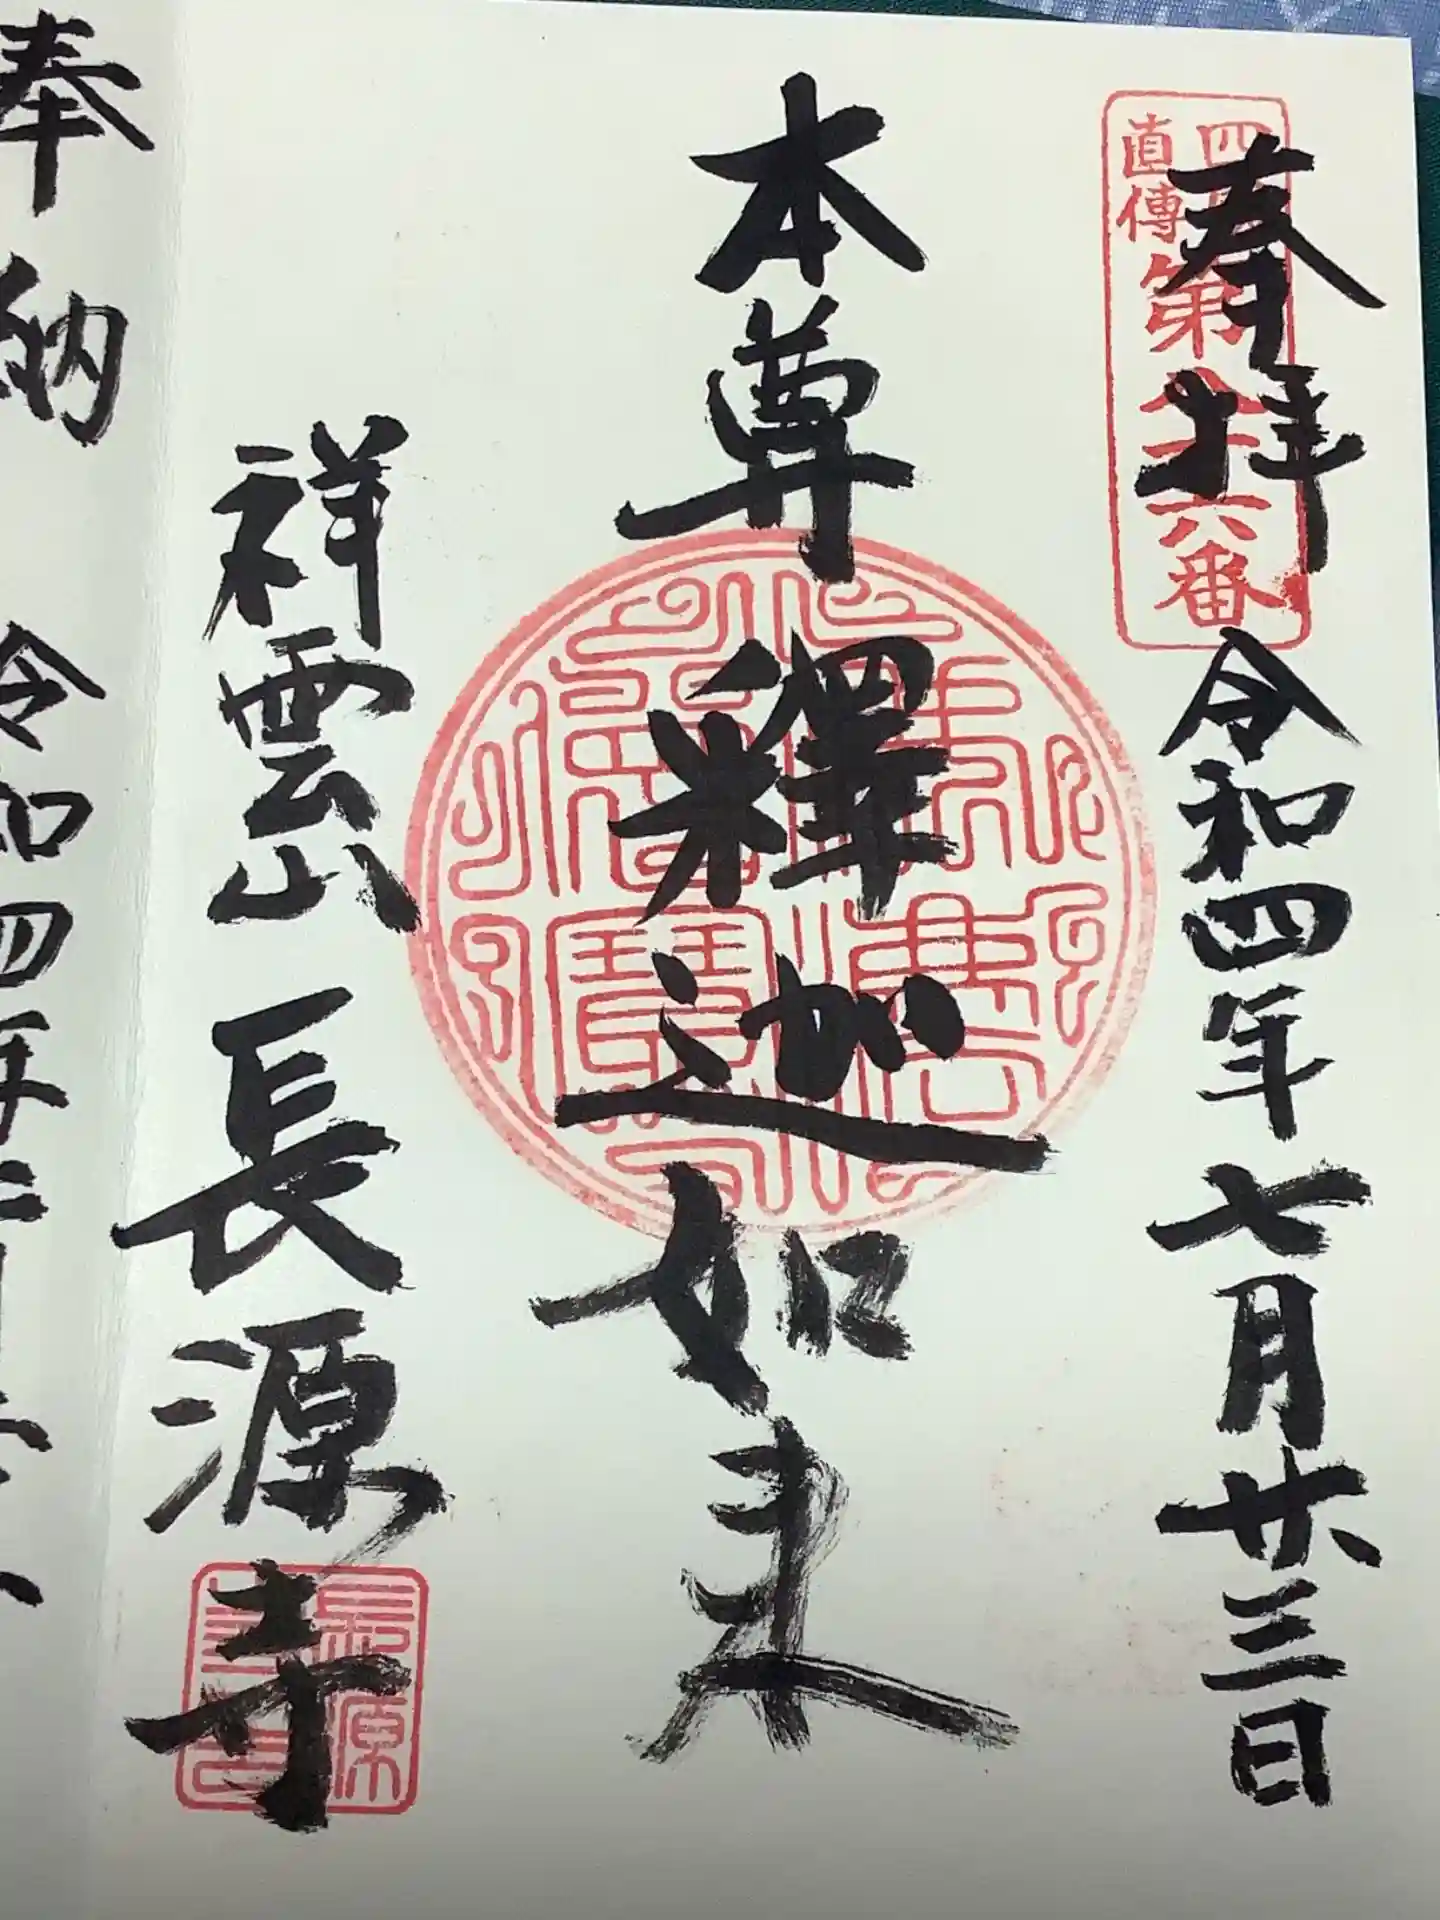 奉拝 令和四年七月廿三日
直傳
第八十六番
本尊 釋迦如来
佛法僧寶
祥雲山 長源寺
奉納 令和四年